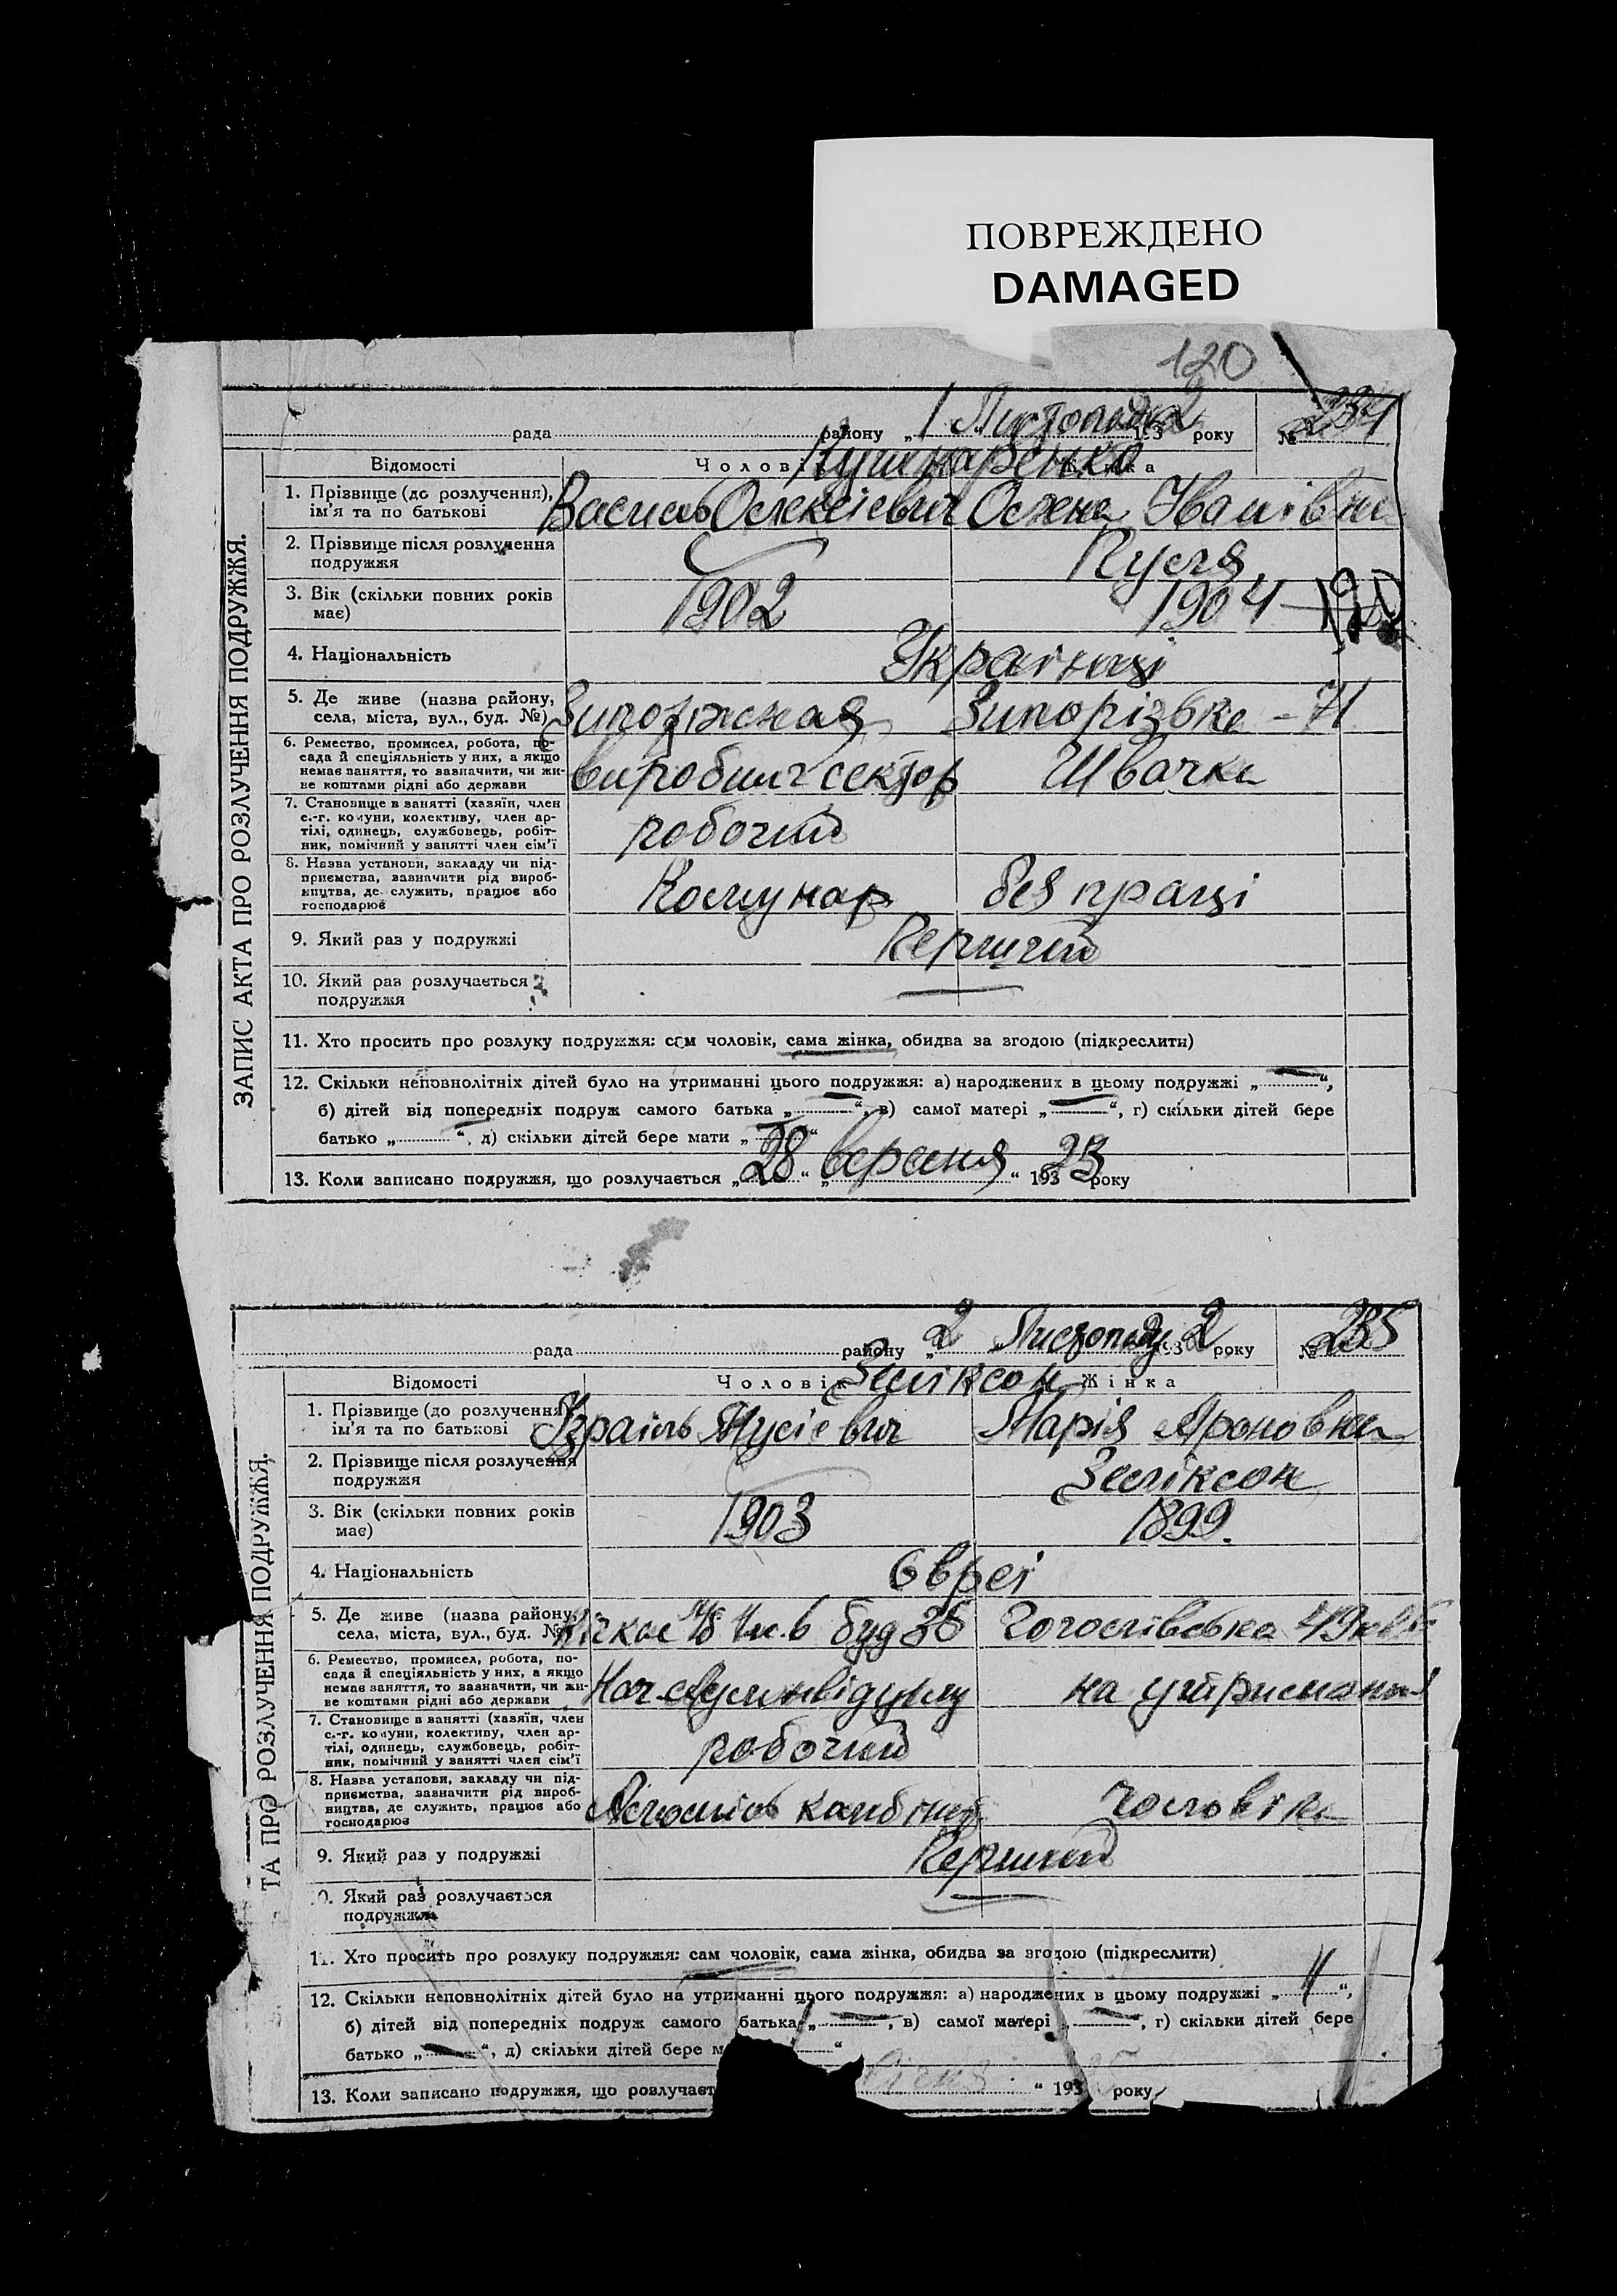 ПОВРЕЖДЕНО
DAMAGED
120
ЗАПИС АКТА ПРО РОЗЛУЧЕННЯ ПОДРУЖЖЯ.
рада району „1 Листопада 1932 року № 234
Відомості Чоловік Жінка
Кушнаренко
1. Прізвище (до розлучення), ім'я та по батькові Василь Олексієвич Олена Іванівна
2. Прізвище після розлучення подружжя Пуля
3. Вік (скільки повних років має) 1902 1904
4. Національність Українці
5. Де живе (назва району, села, міста, вул., буд. №) Запоріжська 71
6. Ремество, промисел, робота, посада й спеціяльність у них, а якщо немає заняття, то зазначити, чи живе коштами рідні або держави виробнич сектор Швачка
7. Становище в занятті (хазяїн, член с.-г. комуни, колективу, член артілі, одинець, службовець, робітник, помічний у занятті член сім'ї робочий
8. Назва установи, закладу чи підприємства, зазначити рід виробництва, де служить, працює або господарює Комунар без праці
9. Який раз у подружжі Перший
10. Який раз розлучається подружжя
11. Хто просить про розлуку подружжя: сам чоловік, сама жінка, обидва за згодою (підкреслити)
12. Скільки неповнолітніх дітей було на утриманні цього подружжя: а) народжених в цьому подружжі „ “,
б) дітей від попередніх подруж самого батька „ “, в) самої матері „ “, г) скільки дітей бере
батько „ “, д) скільки дітей бере мати „ “
13. Коли записано подружжя, що розлучається „28“ „вересня“ 193 23 року
ТА ПРО РОЗЛУЧЕННЯ ПОДРУЖЖЯ.
рада району „2 Листопаду 1932 року № 235
Відомості Чоловік Жінка
Зеліксон
1. Прізвище (до розлучення) ім'я та по батькові Ізраїль Мусієвич Марія Ароновна
2. Прізвище після розлучення подружжя Зеліксон
3. Вік (скільки повних років має) 1903 1899.
4. Національність Євреї
5. Де живе (назва району, села, міста, вул., буд. № Кічкас буд 35 49
6. Ремество, промисел, робота, посада й спеціяльність у них, а якщо немає заняття, то зазначити, чи живе коштами рідні або держави Нач на утриманні
7. Становище в занятті (хазяїн, член с.-г. комуни, колективу, член артілі, одинець, службовець, робітник, помічний у занятті член сім'ї робочий
8. Назва установи, закладу чи підприємства, зазначити рід виробництва, де служить, працює або господарює комбінат чоловіка
9. Який раз у подружжі Перший
0. Який раз розлучається подружжя
11. Хто просить про розлуку подружжя: сам чоловік, сама жінка, обидва за згодою (підкреслити)
12. Скільки неповнолітніх дітей було на утриманні цього подружжя: а) народжених в цьому подружжі „ “,
б) дітей від попередніх подруж самого батька „ “, в) самої матері „ “, г) скільки дітей бере
батько „ “, д) скільки дітей бере м “
13. Коли записано подружжя, що розлучаєт “ 193 року